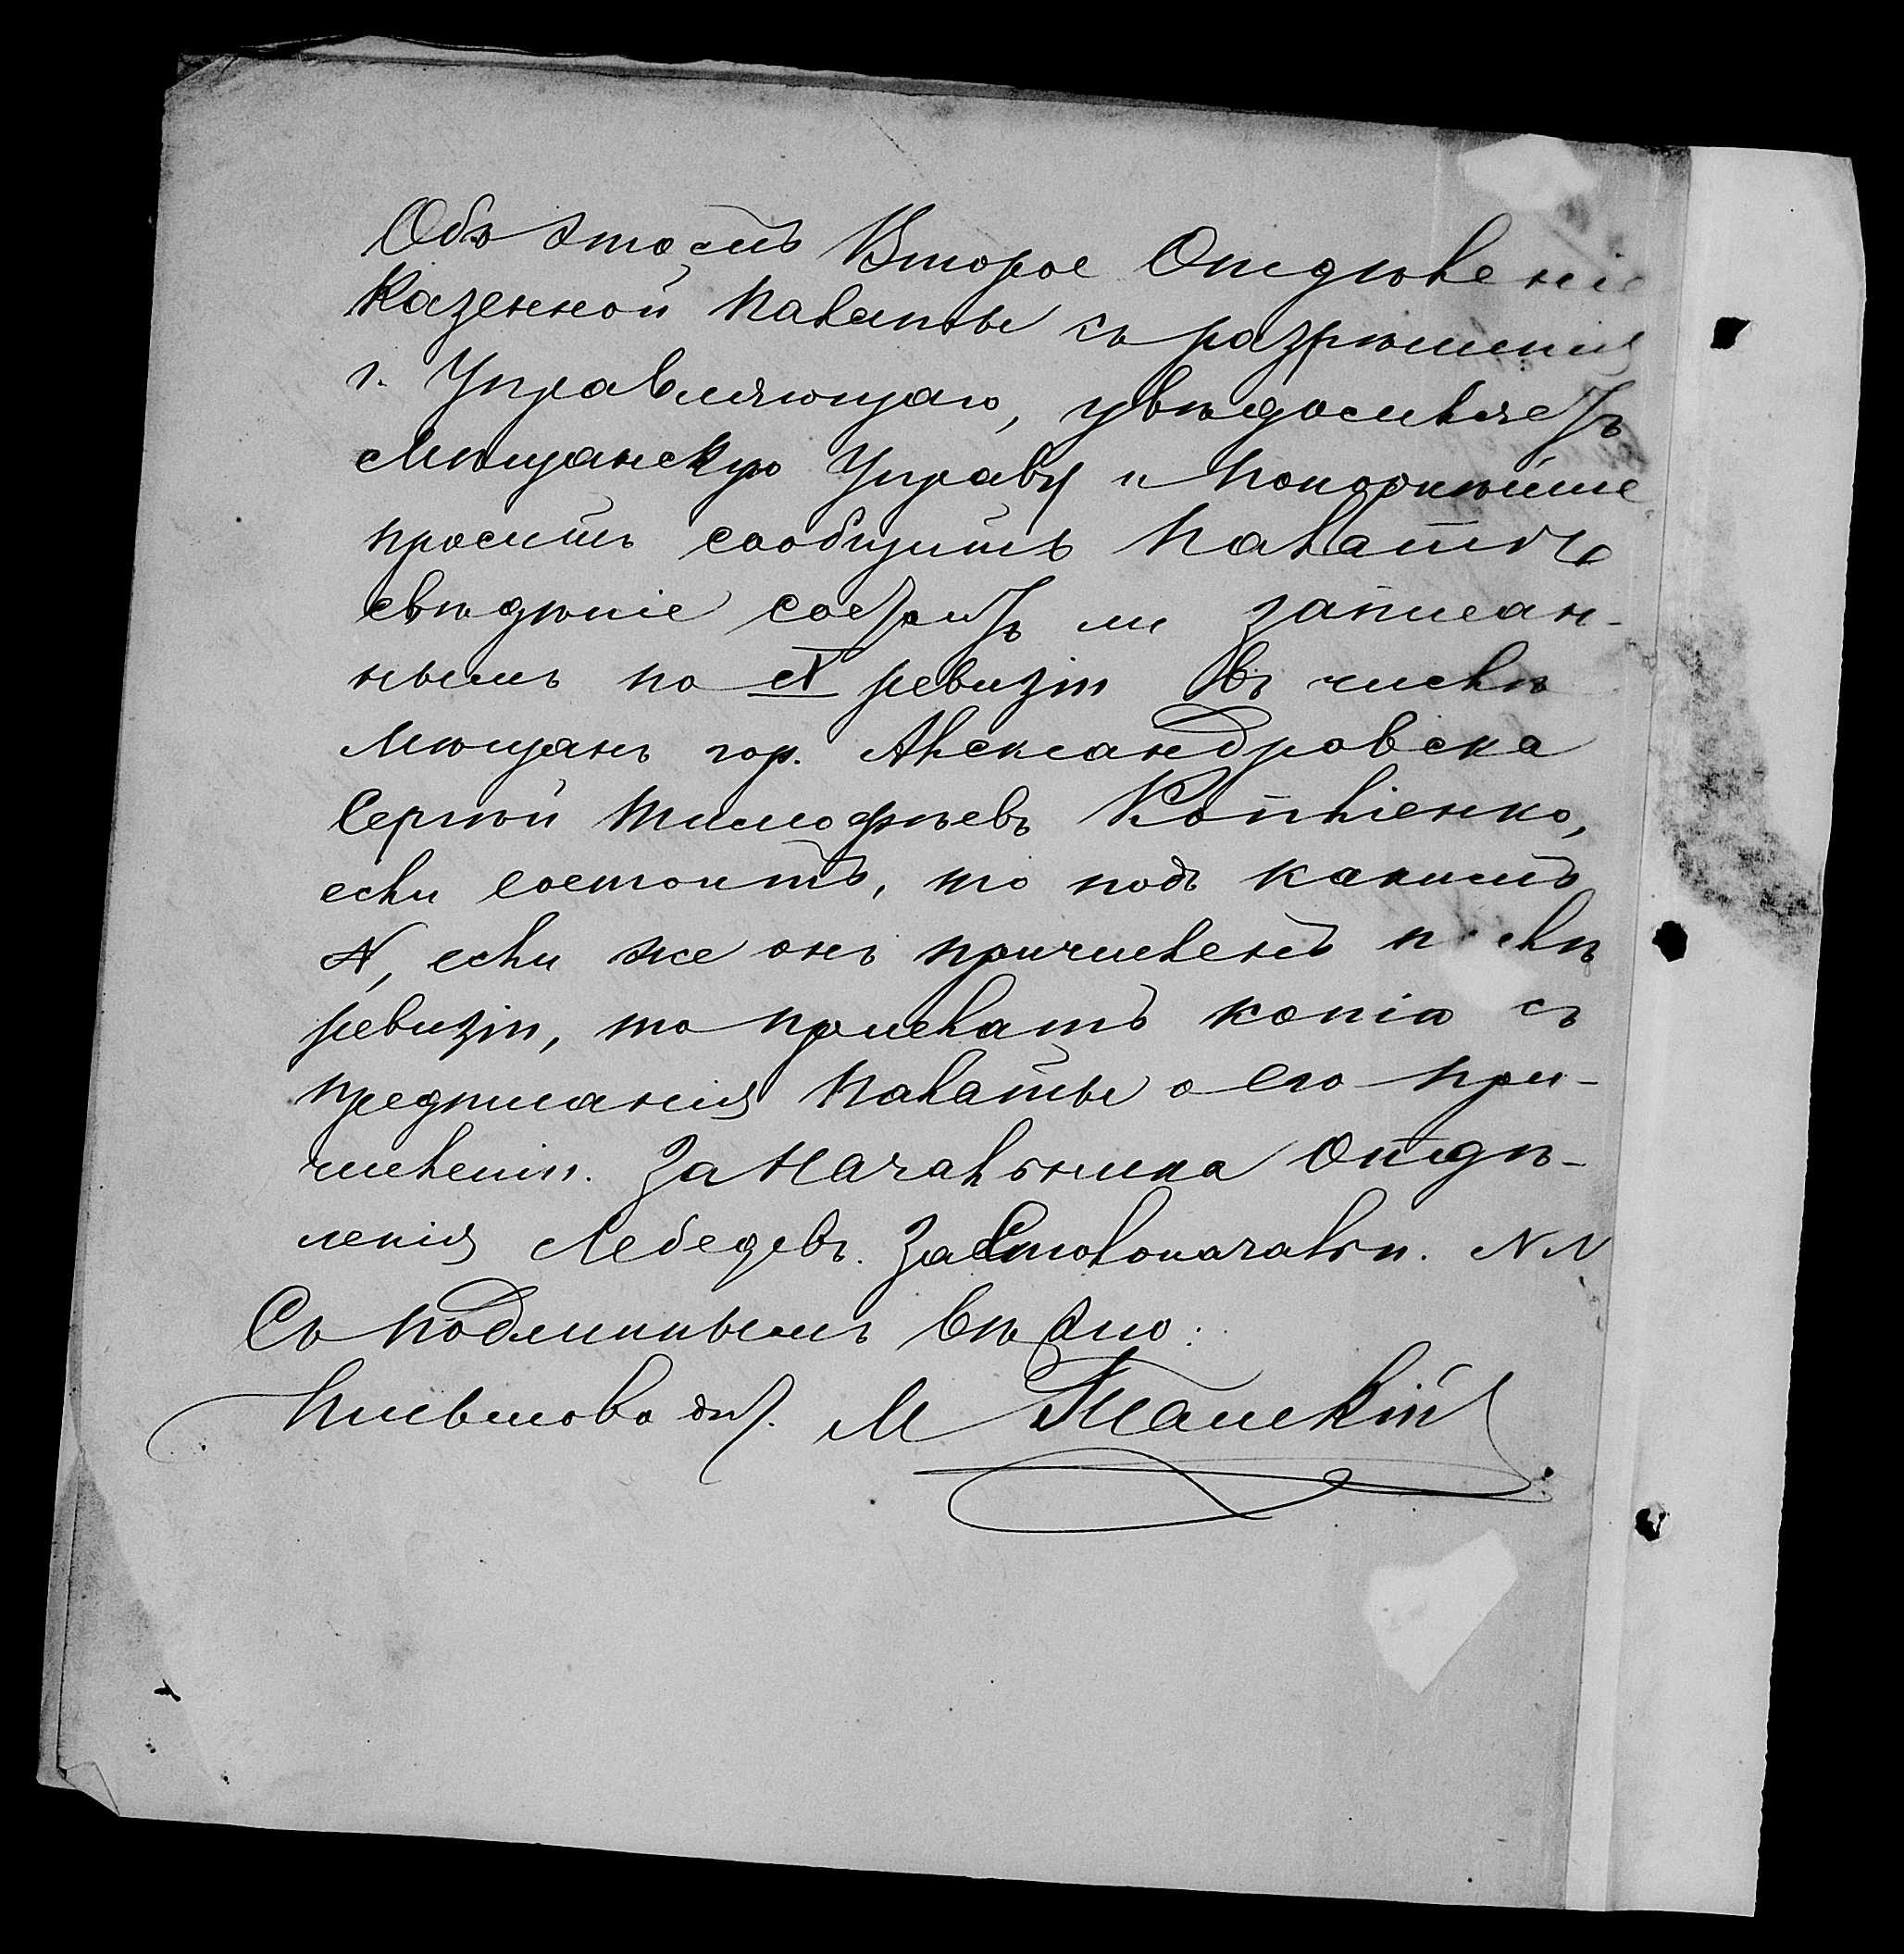 Объ этомъ Второе Отдѣленіе
Казенной Палаты съ разрѣшенія
г. Управляющаго, увѣдомляетъ
Мѣщанскую Управу и покорнѣйше
проситъ сообщить Палатѣ
свѣдѣніе состоитъ ли записан-
нымъ по X ревизіи въ числѣ
Мѣщанъ гор. Александровска
Сергѣй Тимофѣевъ Копліенко,
если состоитъ, то подъ какимъ
N, если же онъ причисленъ послѣ
ревизіи, то прислать копію съ
предписанія Палаты о его при-
численіи. За Начальника Отдѣ-
ленія Лебедевъ. За Столоначальн. NN
Съ подлиннымъ вѣрно:
Письмовод. М